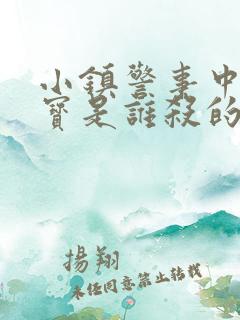 小鎮警事中
寶是誰殺的
揚翔
未经同意禁止转载